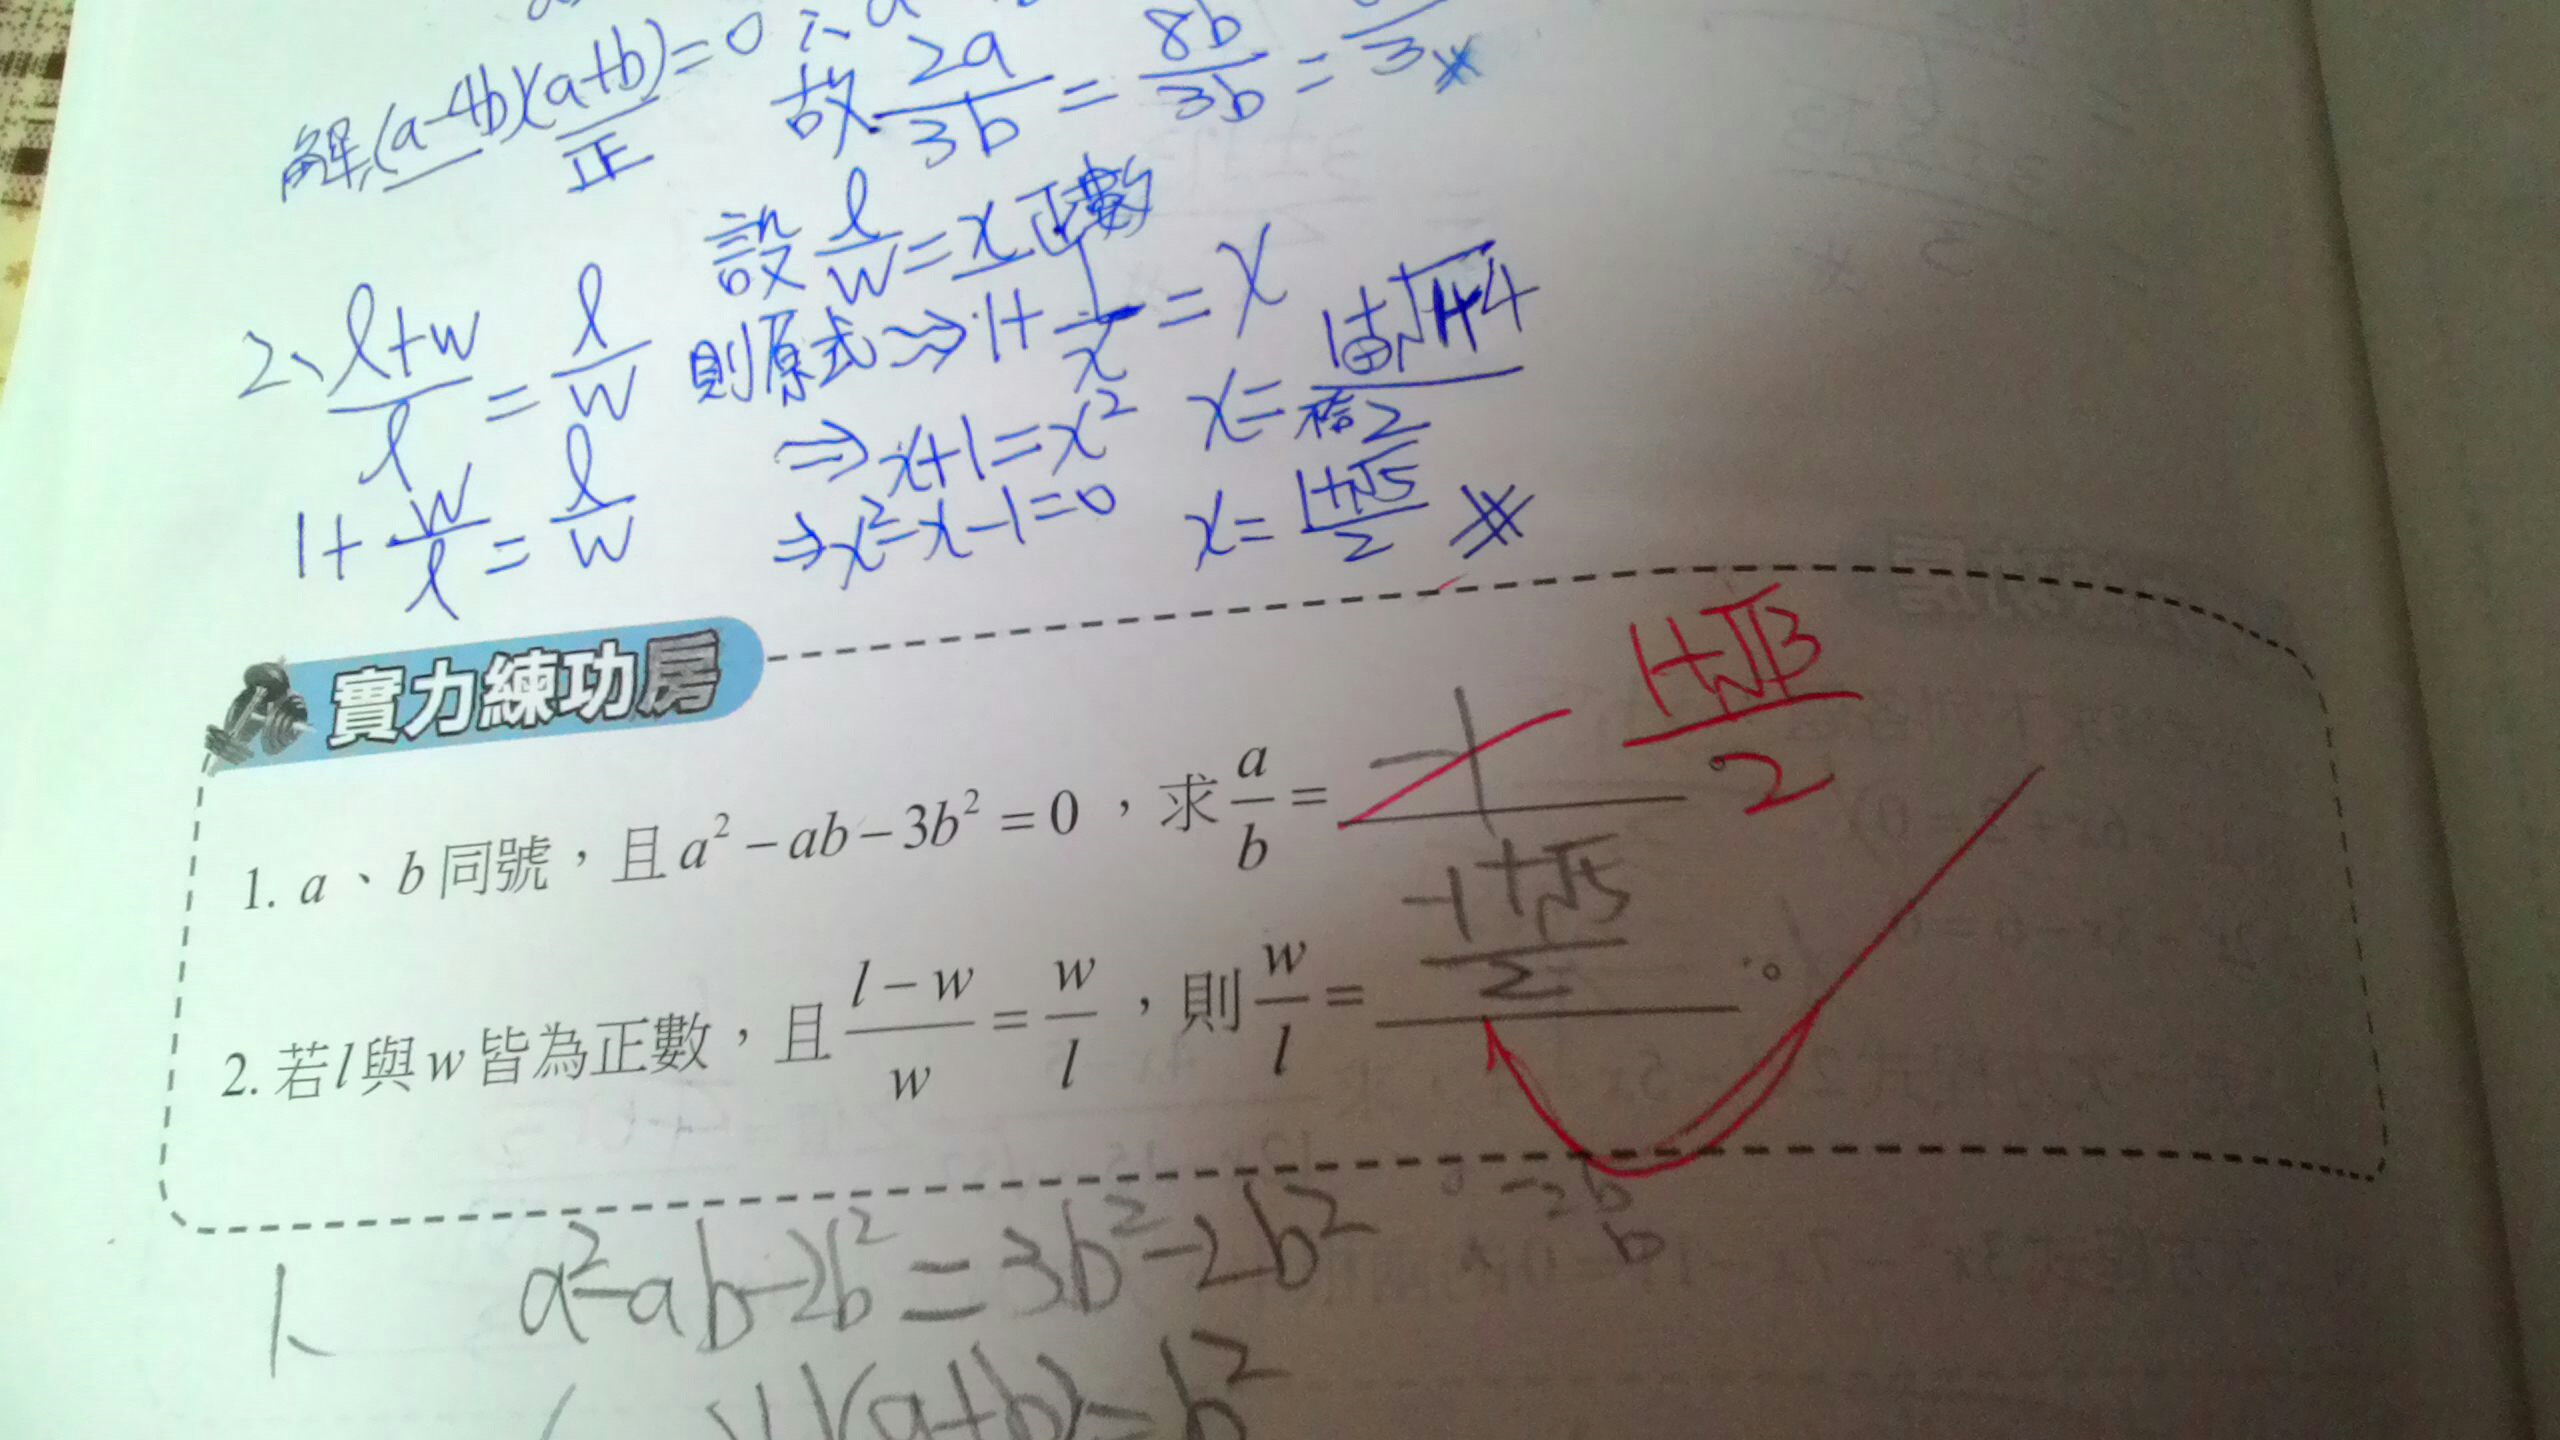 解(a-4b)(a+b)=0 ∴a
正
故 2a/3b = 8b/3b = /3
設 l/w = x 正數
2、 (l+w)/l = l/w 則原式⇝ 1+1/x = x
1+ w/l = l/w
⇒x+1=x²
⇒x²-x-1=0
x= (1±√1+4)/2
x= (1+√5)/2
實力練功房
1. a、b同號，且a²-ab-3b²=0，求 a/b = -1 (1+√13)/2 。
2. 若l與w皆為正數，且 (l-w)/w = w/l ，則 w/l = (-1+√5)/2 。
-2b
b
1、 a²-ab-2b²=3b²-2b²
(a+b)=b²